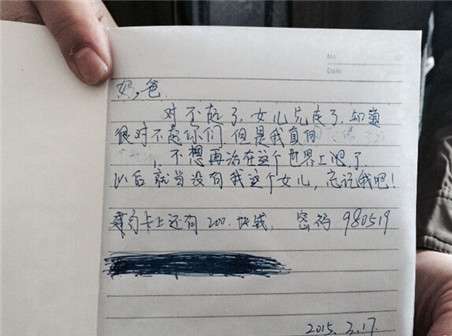 No.
Date
妈，爸
对不起了，女儿先走了，
很对不起你们 但是我真的
不想再活在这个世界上了
以后就当没有我这个女儿，忘记我吧！
卡上还有200块钱，密码980519
2015.3.17